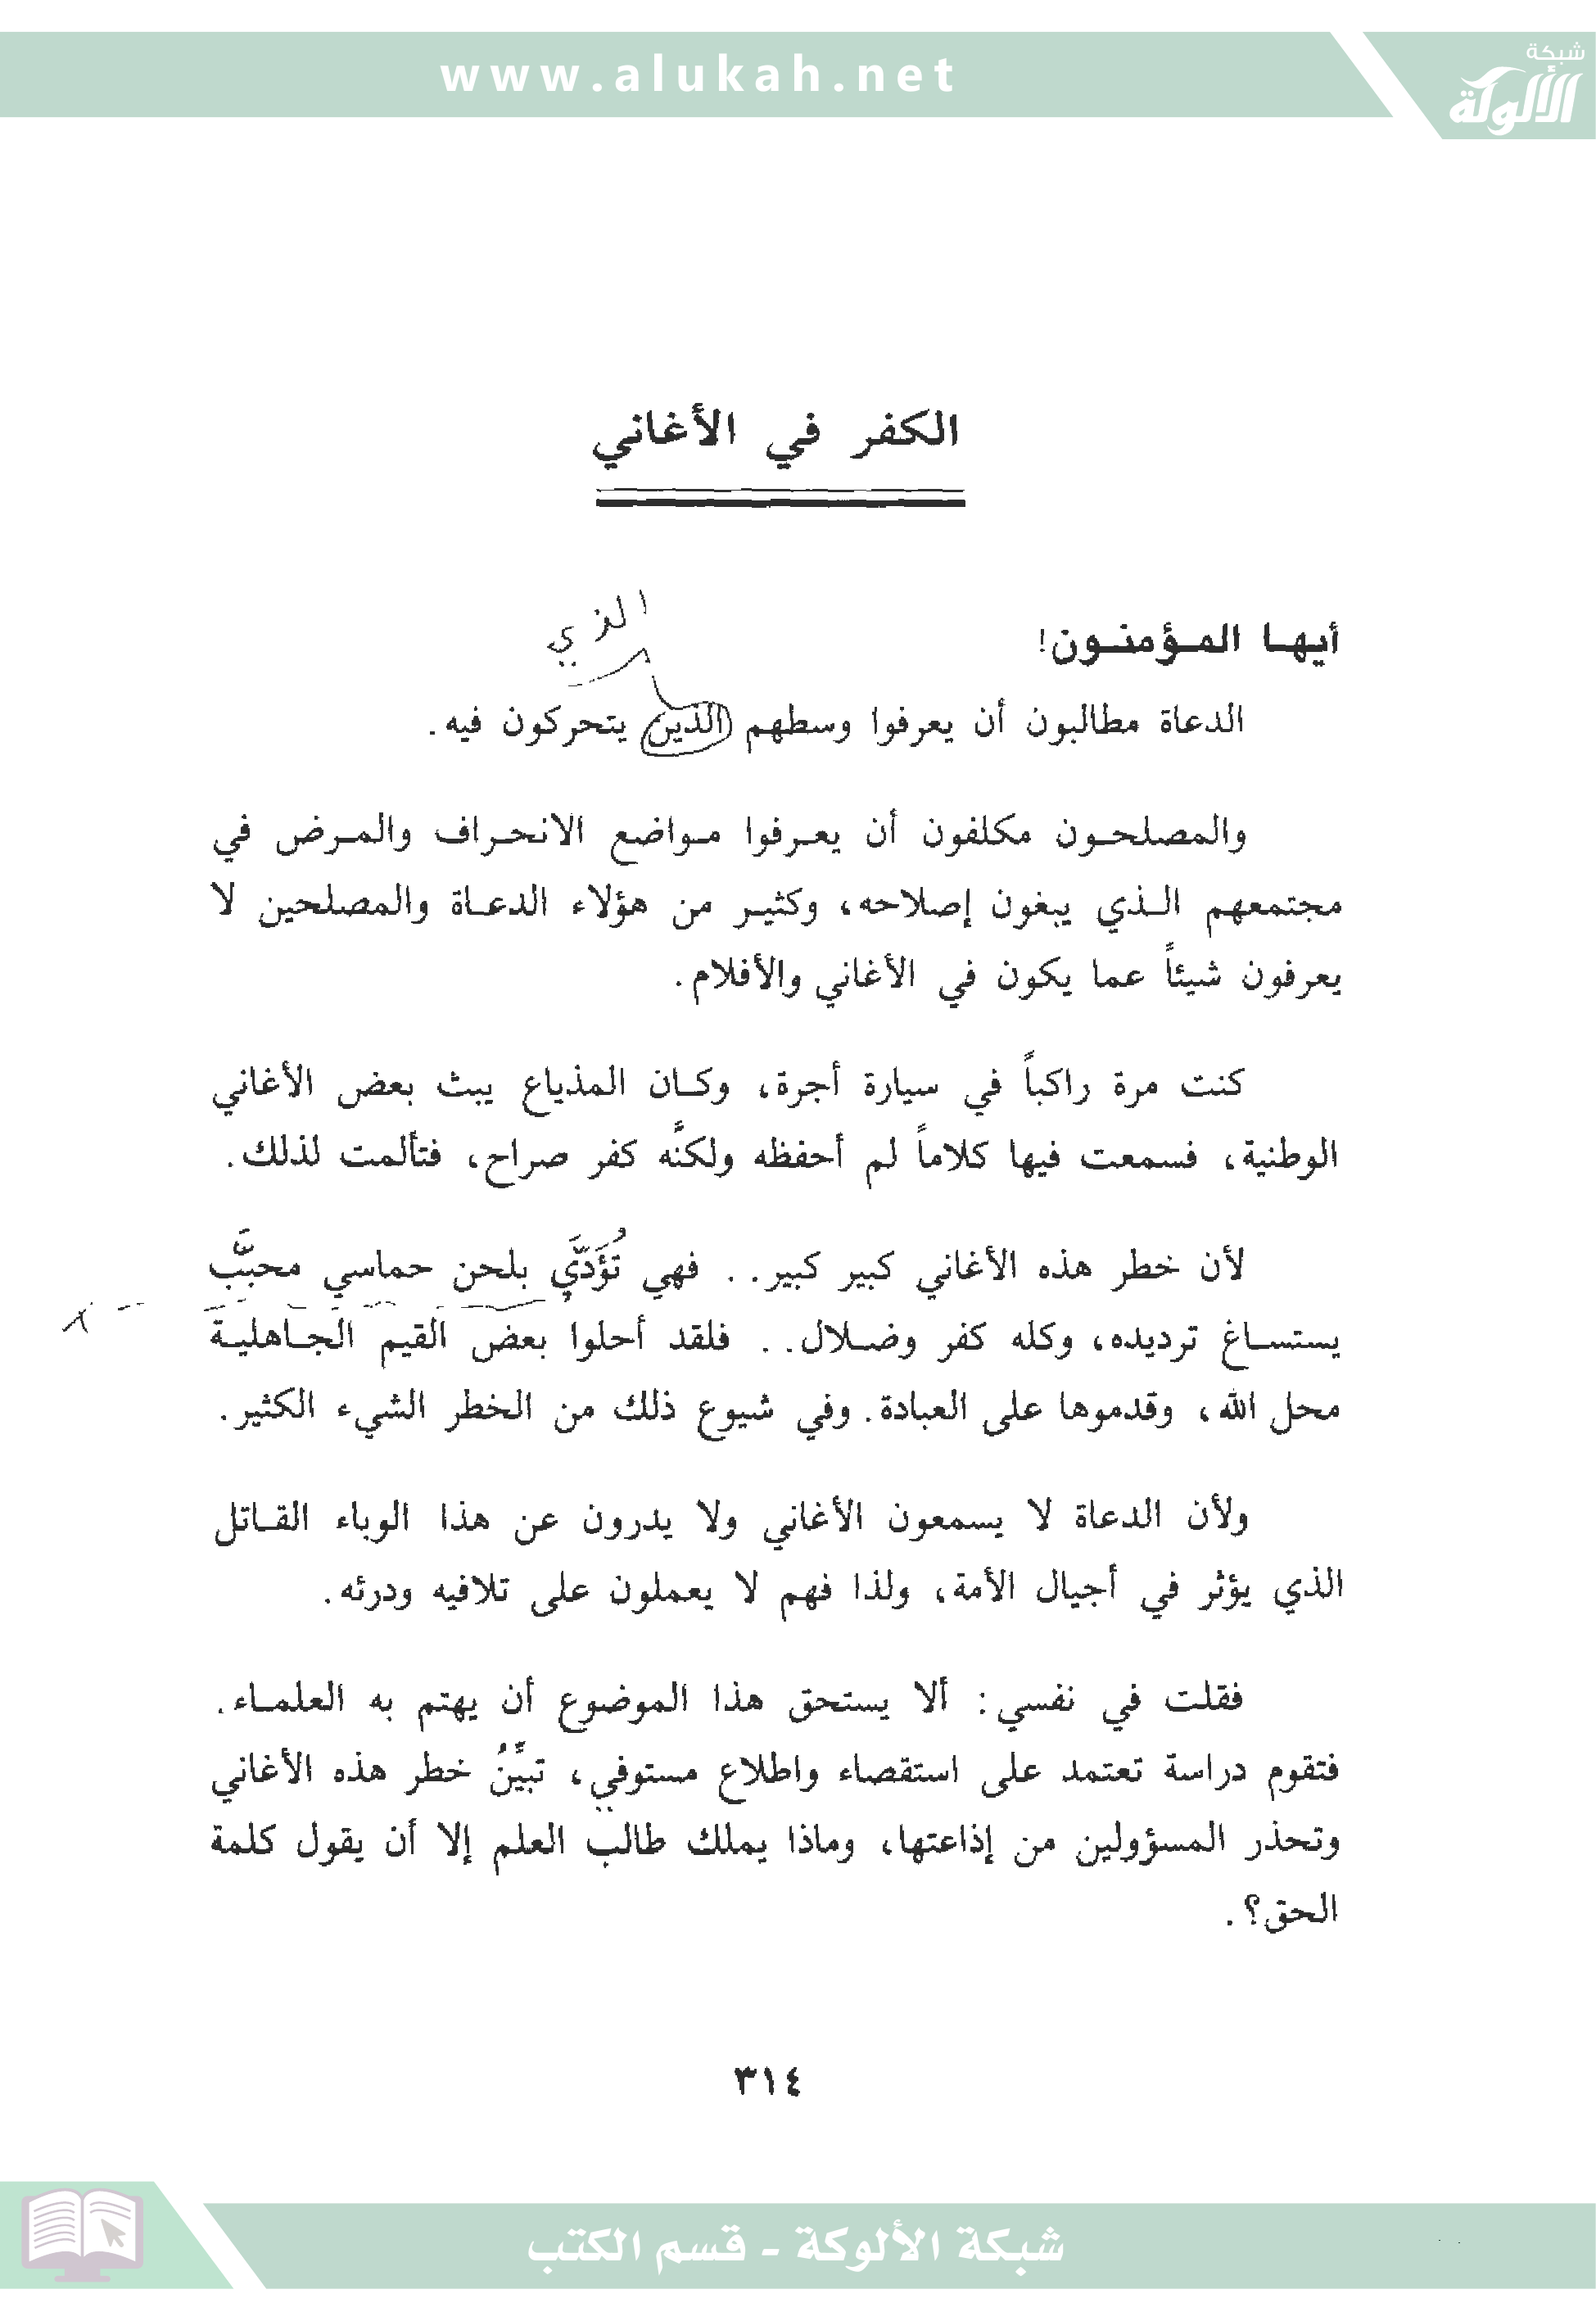 www.alukah.net
شبكة
الألوكة
الكفر في الأغاني
أيهـا المـؤمنـون!
الذي
الدعاة مطالبون أن يعرفوا وسطهم الذين يتحركون فيه.
والمصلحـون مكلفون أن يعـرفوا مـواضع الانحـراف والمـرض في
مجتمعهم الـذي يبغون إصلاحه، وكثيـر من هؤلاء الدعـاة والمصلحين لا
يعرفون شيئاً عما يكون في الأغاني والأفلام.
كنت مرة راكباً في سيارة أجرة، وكـان المذياع يبث بعض الأغاني
الوطنية، فسمعت فيها كلاماً لم أحفظه ولكنَّه كفر صراح، فتألمت لذلك.
لأن خطر هذه الأغاني كبير كبير.. فهي تُؤَدَّي بلحن حماسي محبَّب
يستسـاغ ترديده، وكله كفر وضـلال.. فلقد أحلوا بعض القيم الجـاهليـة
محل الله، وقدموها على العبادة. وفي شيوع ذلك من الخطر الشيء الكثير.
ولأن الدعاة لا يسمعون الأغاني ولا يدرون عن هذا الوباء القـاتل
الذي يؤثر في أجيال الأمة، ولذا فهم لا يعملون على تلافيه ودرئه.
فقلت في نفسي: ألا يستحق هذا الموضوع أن يهتم به العلمـاء.
فتقوم دراسة تعتمد على استقصاء واطلاع مستوفي، تبيِّنُ خطر هذه الأغاني
وتحذر المسؤولين من إذاعتها، وماذا يملك طالب العلم إلا أن يقول كلمة
الحق؟.
٣١٤
شبكة الألوكة - قسم الكتب